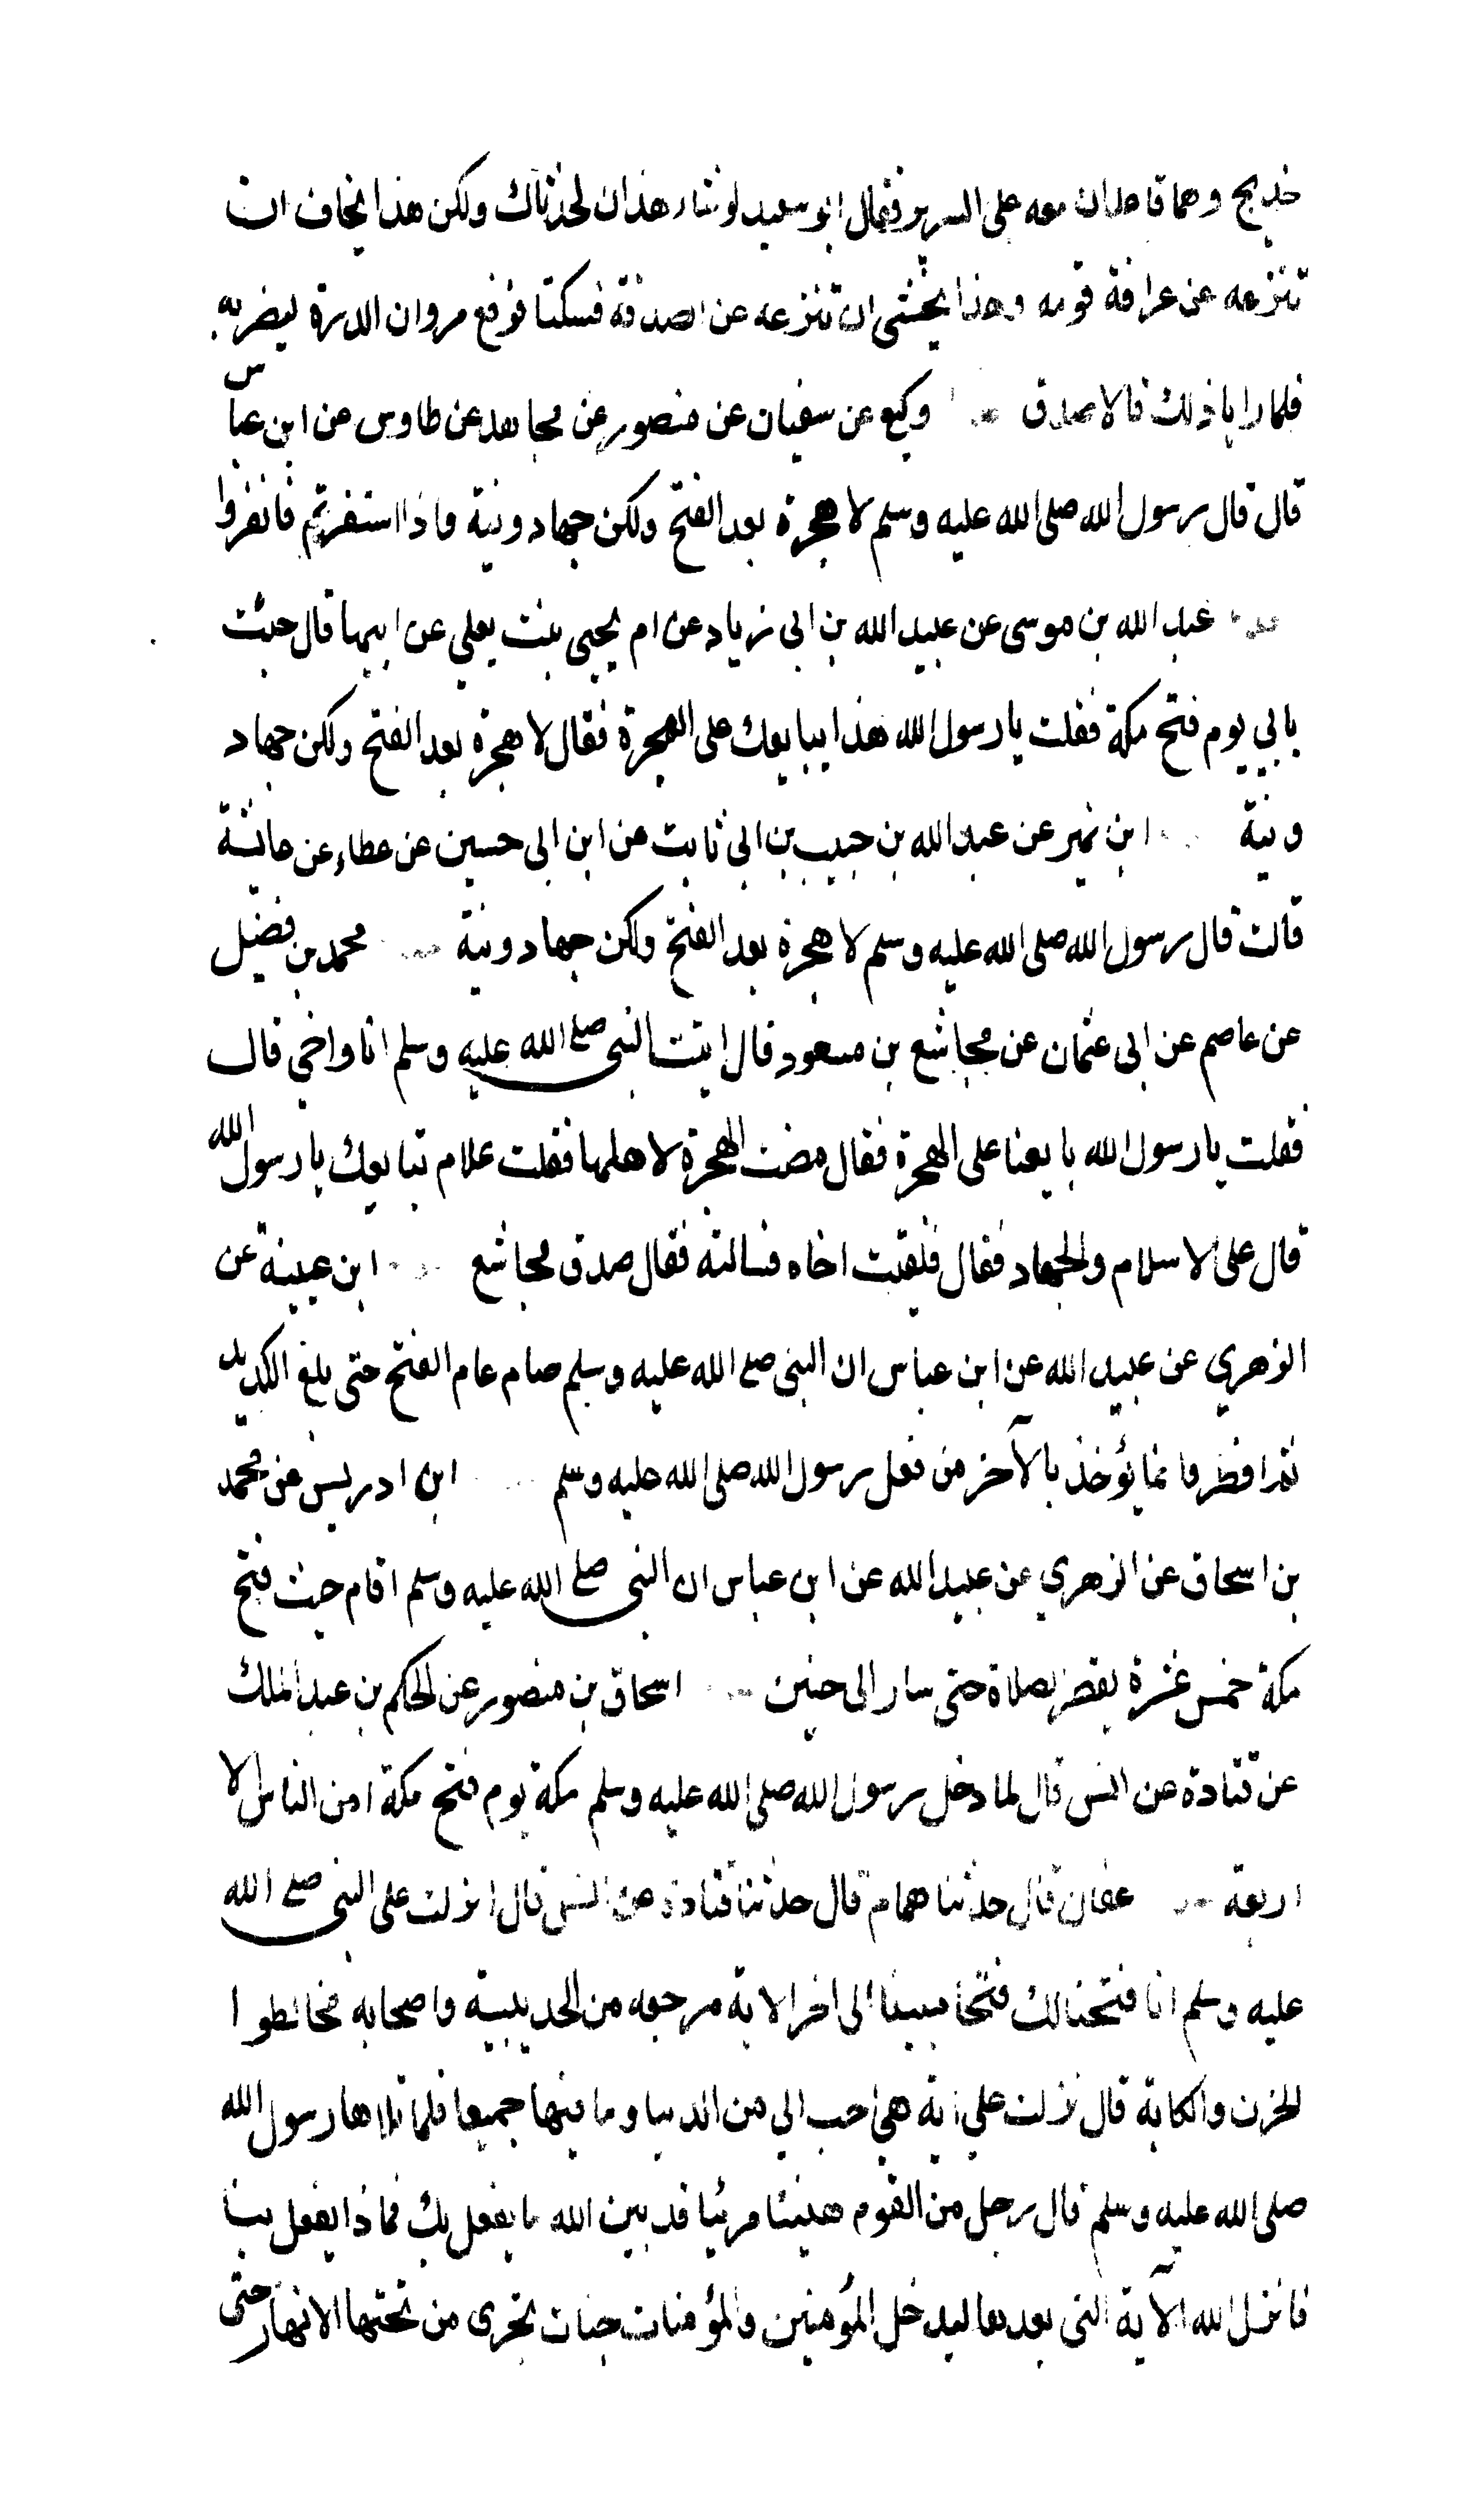 خديج وهما قاعدان معه على السرير فقال ابو سعيد لو شاء هذان لحدثاك ولكن هذا يخاف ان
تنزعه عن عرافة قومه وهذا يخشى ان تنزعه عن الصدقة فسكتا فرفع مروان الدرة ليضربه
فلما رايا ذلك قالا صدق وكيع عن سفيان عن منصور عن مجاهد عن طاوس عن ابن عباس
قال قال رسول الله صلى الله عليه وسلم لا هجرة بعد الفتح ولكن جهاد ونية واذا استنفرتم فانفروا
عبد الله بن موسى عن عبيد الله بن ابى زياد عن ام يحيى بنت يعلي عن ابيها قال جئت
بابي يوم فتح مكة فقلت يا رسول الله هذا يبايعك على الهجرة فقال لا هجرة بعد الفتح ولكن جهاد
ونية ابن نمير عن عبد الله بن حبيب بن ابى ثابت عن ابن ابى حسين عن عطاء عن عائشة
قالت قال رسول الله صلى الله عليه وسلم لا هجرة بعد الفتح ولكن جهاد ونية محمد بن فضيل
عن عاصم عن ابى عثمان عن مجاشع بن مسعود قال اتيت النبي صلى الله عليه وسلم انا واخي قال
فقلت يا رسول الله بايعنا على الهجرة فقال مضت الهجرة لاهلها فقلت علام تبايعك يا رسول الله
قال على الاسلام والجهاد فقال فلقيت اخاه فسالته فقال صدق مجاشع ابن عيينة عن
الزهري عن عبيد الله عن ابن عباس ان النبي صلى الله عليه وسلم صام عام الفتح حتى بلغ الكديد
ثم افطر وانما يؤخذ بالآخر من فعل رسول الله صلى الله عليه وسلم ابن ادريس عن محمد
بن اسحاق عن الزهري عن عبيد الله عن ابن عباس ان النبي صلى الله عليه وسلم اقام حيث فتح
مكة خمس عشرة يقصر الصلاة حتى سار الى حنين اسحاق بن منصور عن الحكم بن عبد الملك
عن قتادة عن انس قال لما دخل رسول الله صلى الله عليه وسلم مكة يوم فتح مكة امن الناس الا
اربعة عفان قال حدثنا همام قال حدثنا قتادة عن انس قال انزلت على النبي صلى الله
عليه وسلم انا فتحنا لك فتحا مبينا الى اخر الاية مرجعه من الحديبية واصحابه مخالطوا
الحزن والكابة قال نزلت علي اية هي احب الي من الدنيا وما فيها جميعا فلما تلاها رسول الله
صلى الله عليه وسلم قال رجل من القوم هنيئا مريئا قد بين الله ما يفعل بك فماذا يفعل بنا
فانزل الله الآية التي بعدها ليدخل المؤمنين والمؤمنات جنات تجري من تحتها الانهار حتى